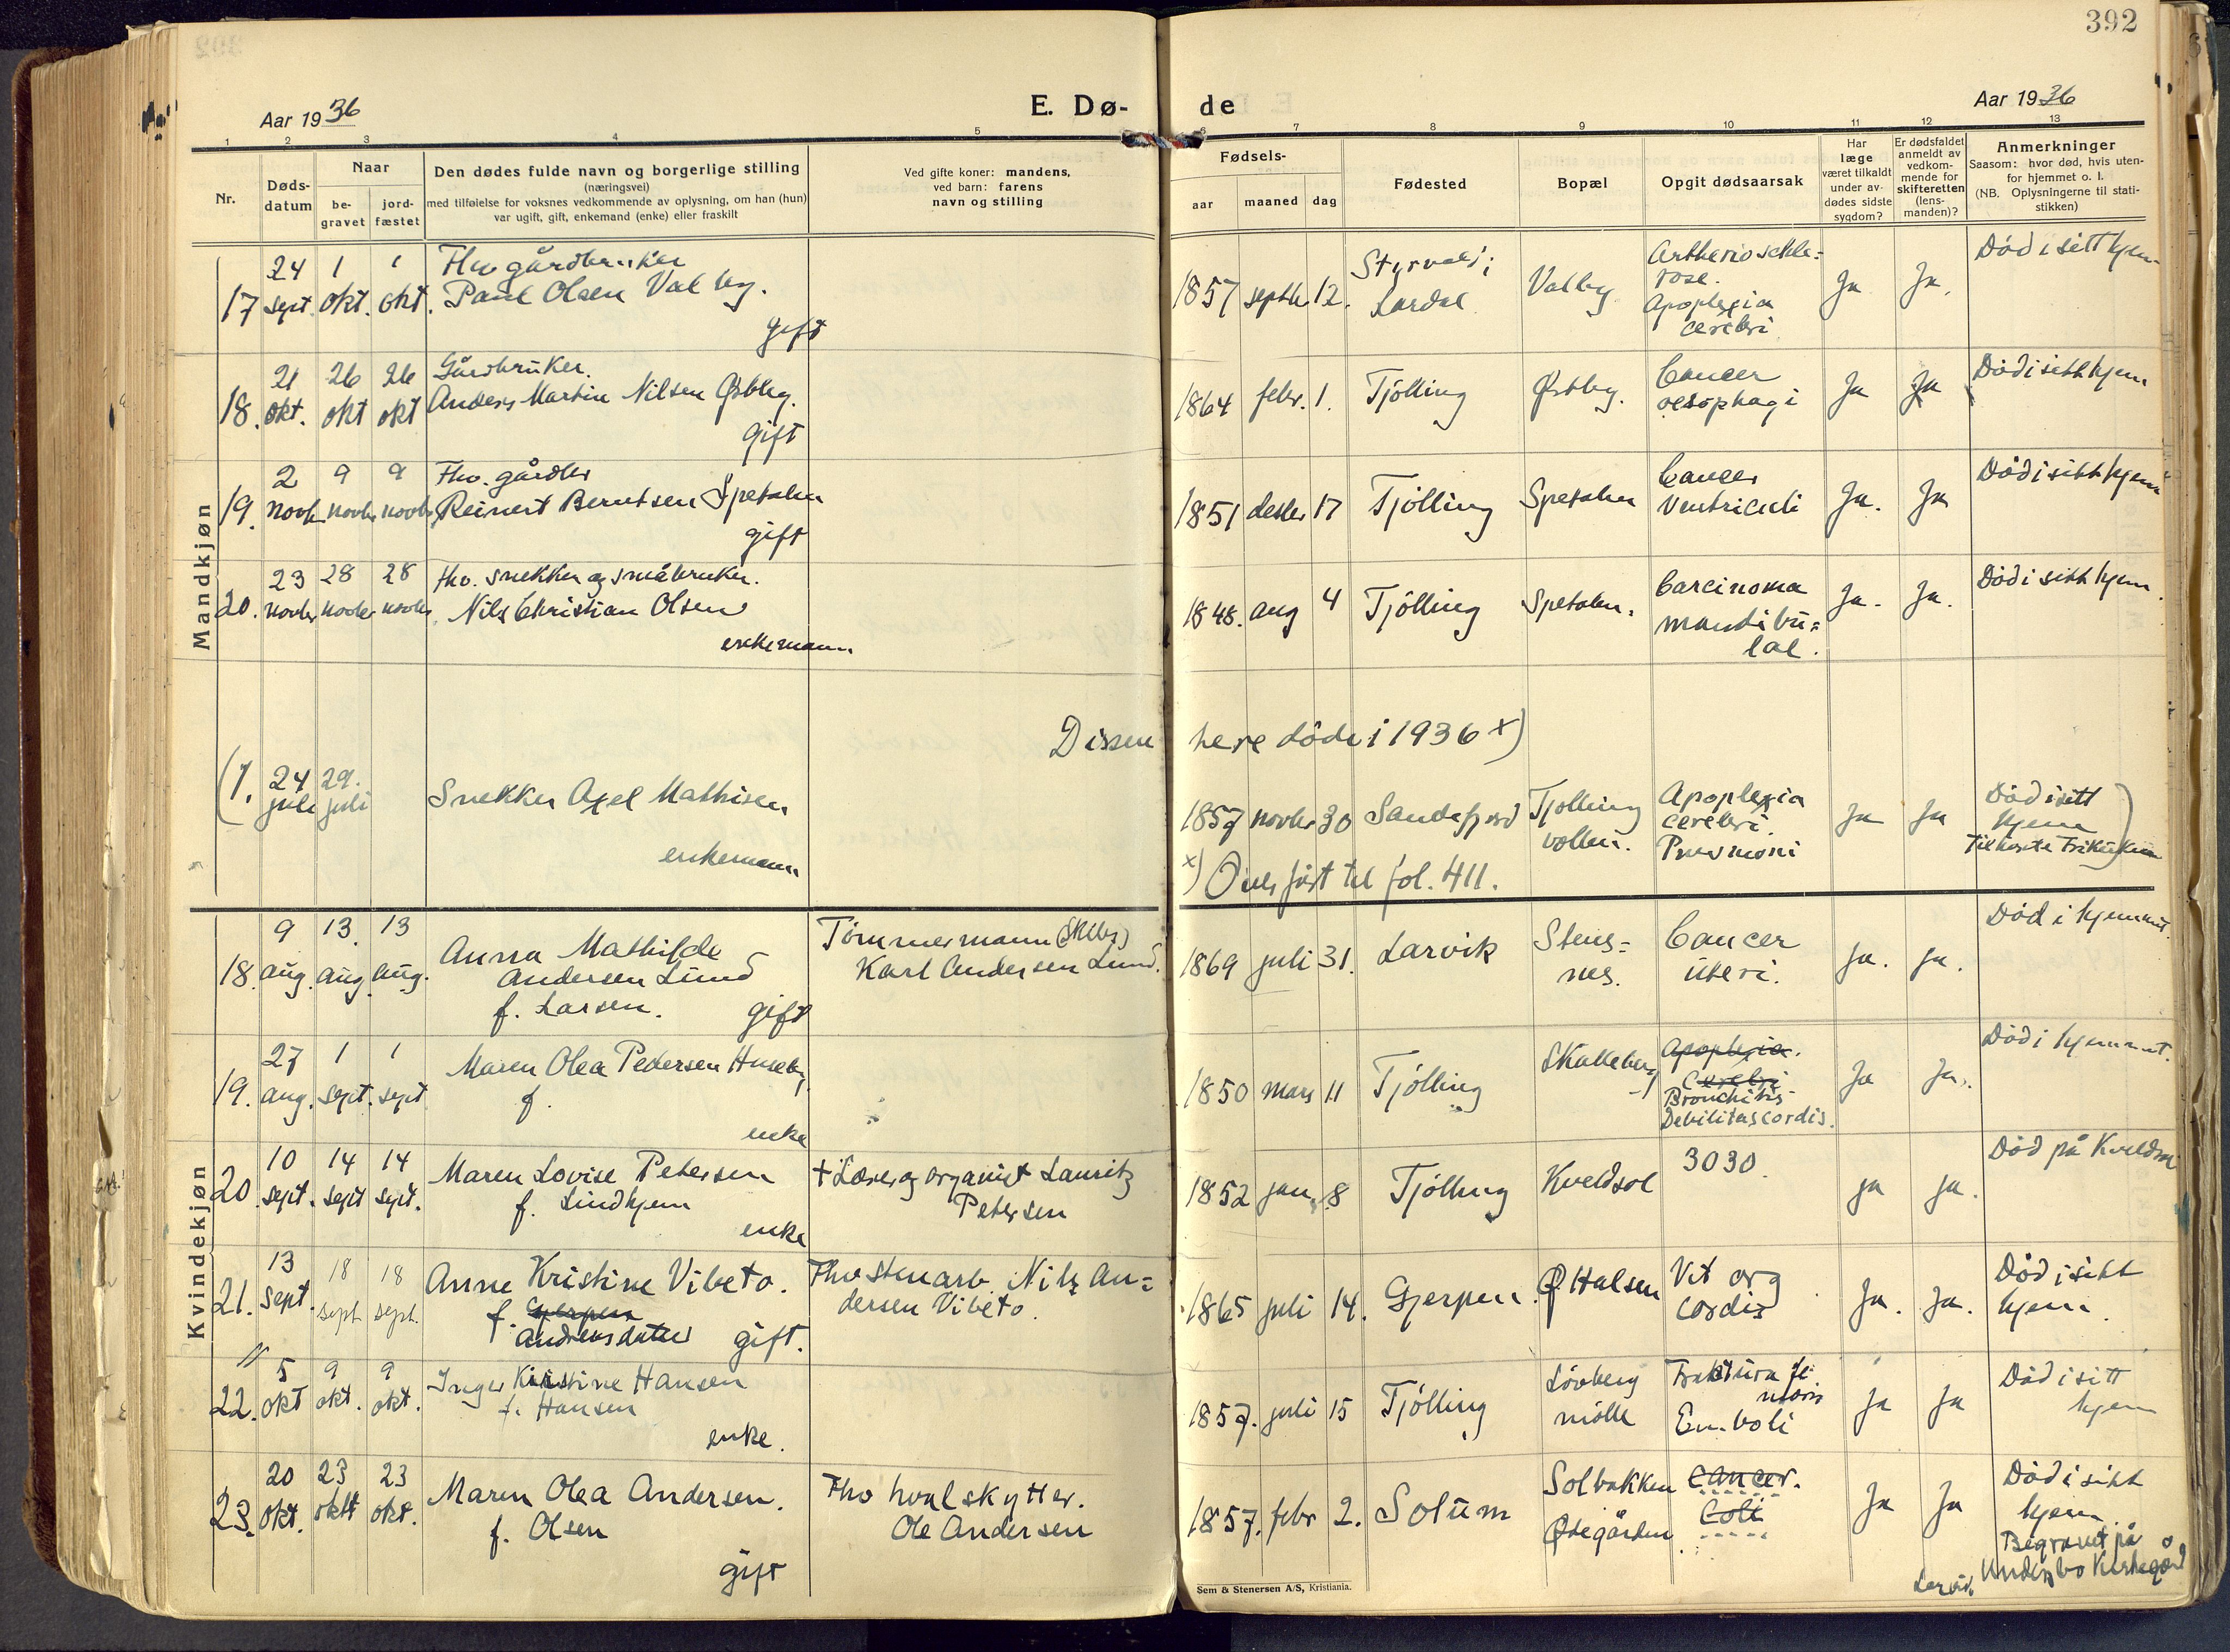 392
Aar 1936
E. Dø-
de
Aar 1936
1 2 3 4 5 6 7 8 9 10 11 12 13
Nr.
Døds-
datum
Naar
be-
gravet
jord-
fæstet
Den dødes fulde navn og borgerlige stilling
(næringsvei)
med tilføielse for voksnes vedkommende av oplysning, om han (hun)
var ugift, gift, enkemand (enke) eller fraskilt
Ved gifte koner: mandens,
ved barn: farens
navn og stilling
Fødsels-
aar maaned dag
Fødested
Bopæl
Opgit dødsaarsak
Har
læge
været tilkaldt
under av-
dødes sidste
sygdom?
Er dødsfaldet
anmeldt av
vedkom-
mende for
skifteretten
(lens-
manden)?
Anmerkninger
Saasom: hvor død, hvis uten-
for hjemmet o. l.
(NB. Oplysningerne til stati-
stikken)
Mandkjøn
17 24 sept. 1 okt. 1 okt.
Fhv gårdbruker
Paul Olsen Valby.
gift
1857 septbr 12.
Lardal
Valby
Artheriosckle-
rose.
Apoplexia
cerebri
Ja Ja.
Død i sitt hjem
18. 21 okt. 26 okt 26 okt
Gårdbruker.
Anders Martin Nilsen Østby.
gift
1864 febr. 1. Tjölling Østby.
Cancer
oesophagi
Ja Ja
Død i sitt hjem
19. 2 novbr 9 novbr 9 novbr
Fhv. gårdbr
Reinert Berntsen Spetalen
gift
1851 desbr 17 Tjölling Spetalen
Cancer
Ventriculi
Ja. Ja
Død i sitt hjem
20. 23 novbr 28 novbr 28 novbr
fhv. snekker og småbruker.
Nils Christian Olsen
enkemann
1848. aug 4 Tjölling Spetalen.
Carcinoma
mandibu=
lae.
Ja. Ja.
Død i sitt hjem.
Dissen
here döde i 1936 x)
(1. 24 juli 29. juli
Snekker Axel Mathisen
enkemann
1857 novbr 30 Sandefjord
Tjölling
vollen.
Apoplexia
cerebri.
Pnevmoni
Ja Ja
Død i sitt
hjem
Tilhørte Frikirken)
x) Overført til fol. 411.
Kvindekjøn
18. 9 aug. 13. aug. 13 aug.
Anna Mathilde
Andersen Lund
f. Larsen. gift
Tömmermann
Karl Andersen Lund.
1869 juli 31. Larvik
Stens=
nes.
Cancer
uteri.
Ja. ja.
Død i hjemmet.
19. 27 aug. 1 sept. 1 sept
Maren Olea Pedersen Huseby
f.
enke
1850 mars 11 Tjölling
Skalleberg
Apoplexia.
Cerebri
Bronchitis-
Debilitas cordis.
Ja Ja.
Død i hjemmet.
20. 10 sept. 14 sept 14 sept.
Maren Lovise Petersen
f. Lindhjem
enke
+ Lærer og organist Lauritz
Petersen
1852 jan. 8 Tjölling Kveldsol
3030.
ja ja.
Død på Kveldsol
21. 13 sept. 18 sept. 18 sept.
Anne Kristine Vibeto.
f. Gjerpen
Andreasdatter gift.
Fhv stenarb. Nils An=
dersen Vibeto.
1865 juli 14. Gjerpen. Ø Halsen
Vit org
cordis
Ja. Ja.
Død i sitt
hjem.
22. 5 okt 9 okt. 9 okt.
Inger Kristine Hansen
f. Hansen
enke.
1857. juli 15 Tjölling
Lövberg
mölle
Fraktura fe
moris
Emboli
Ja Ja
Død i sitt
hjem
23. 20 okt. 23 oktt 23 okt.
Maren Olea Andersen.
f. Olsen
gift
Fhv hvalskytter.
Ole Andersen
1857. febr 2. Solum
Solbakken
Østegården.
Cancer.
Coli
Ja Ja
Død i sitt
hjem.
Begravet på
Undersbo Kirkegård
Larvik
Sem & Stenersen A/S, Kristiania.